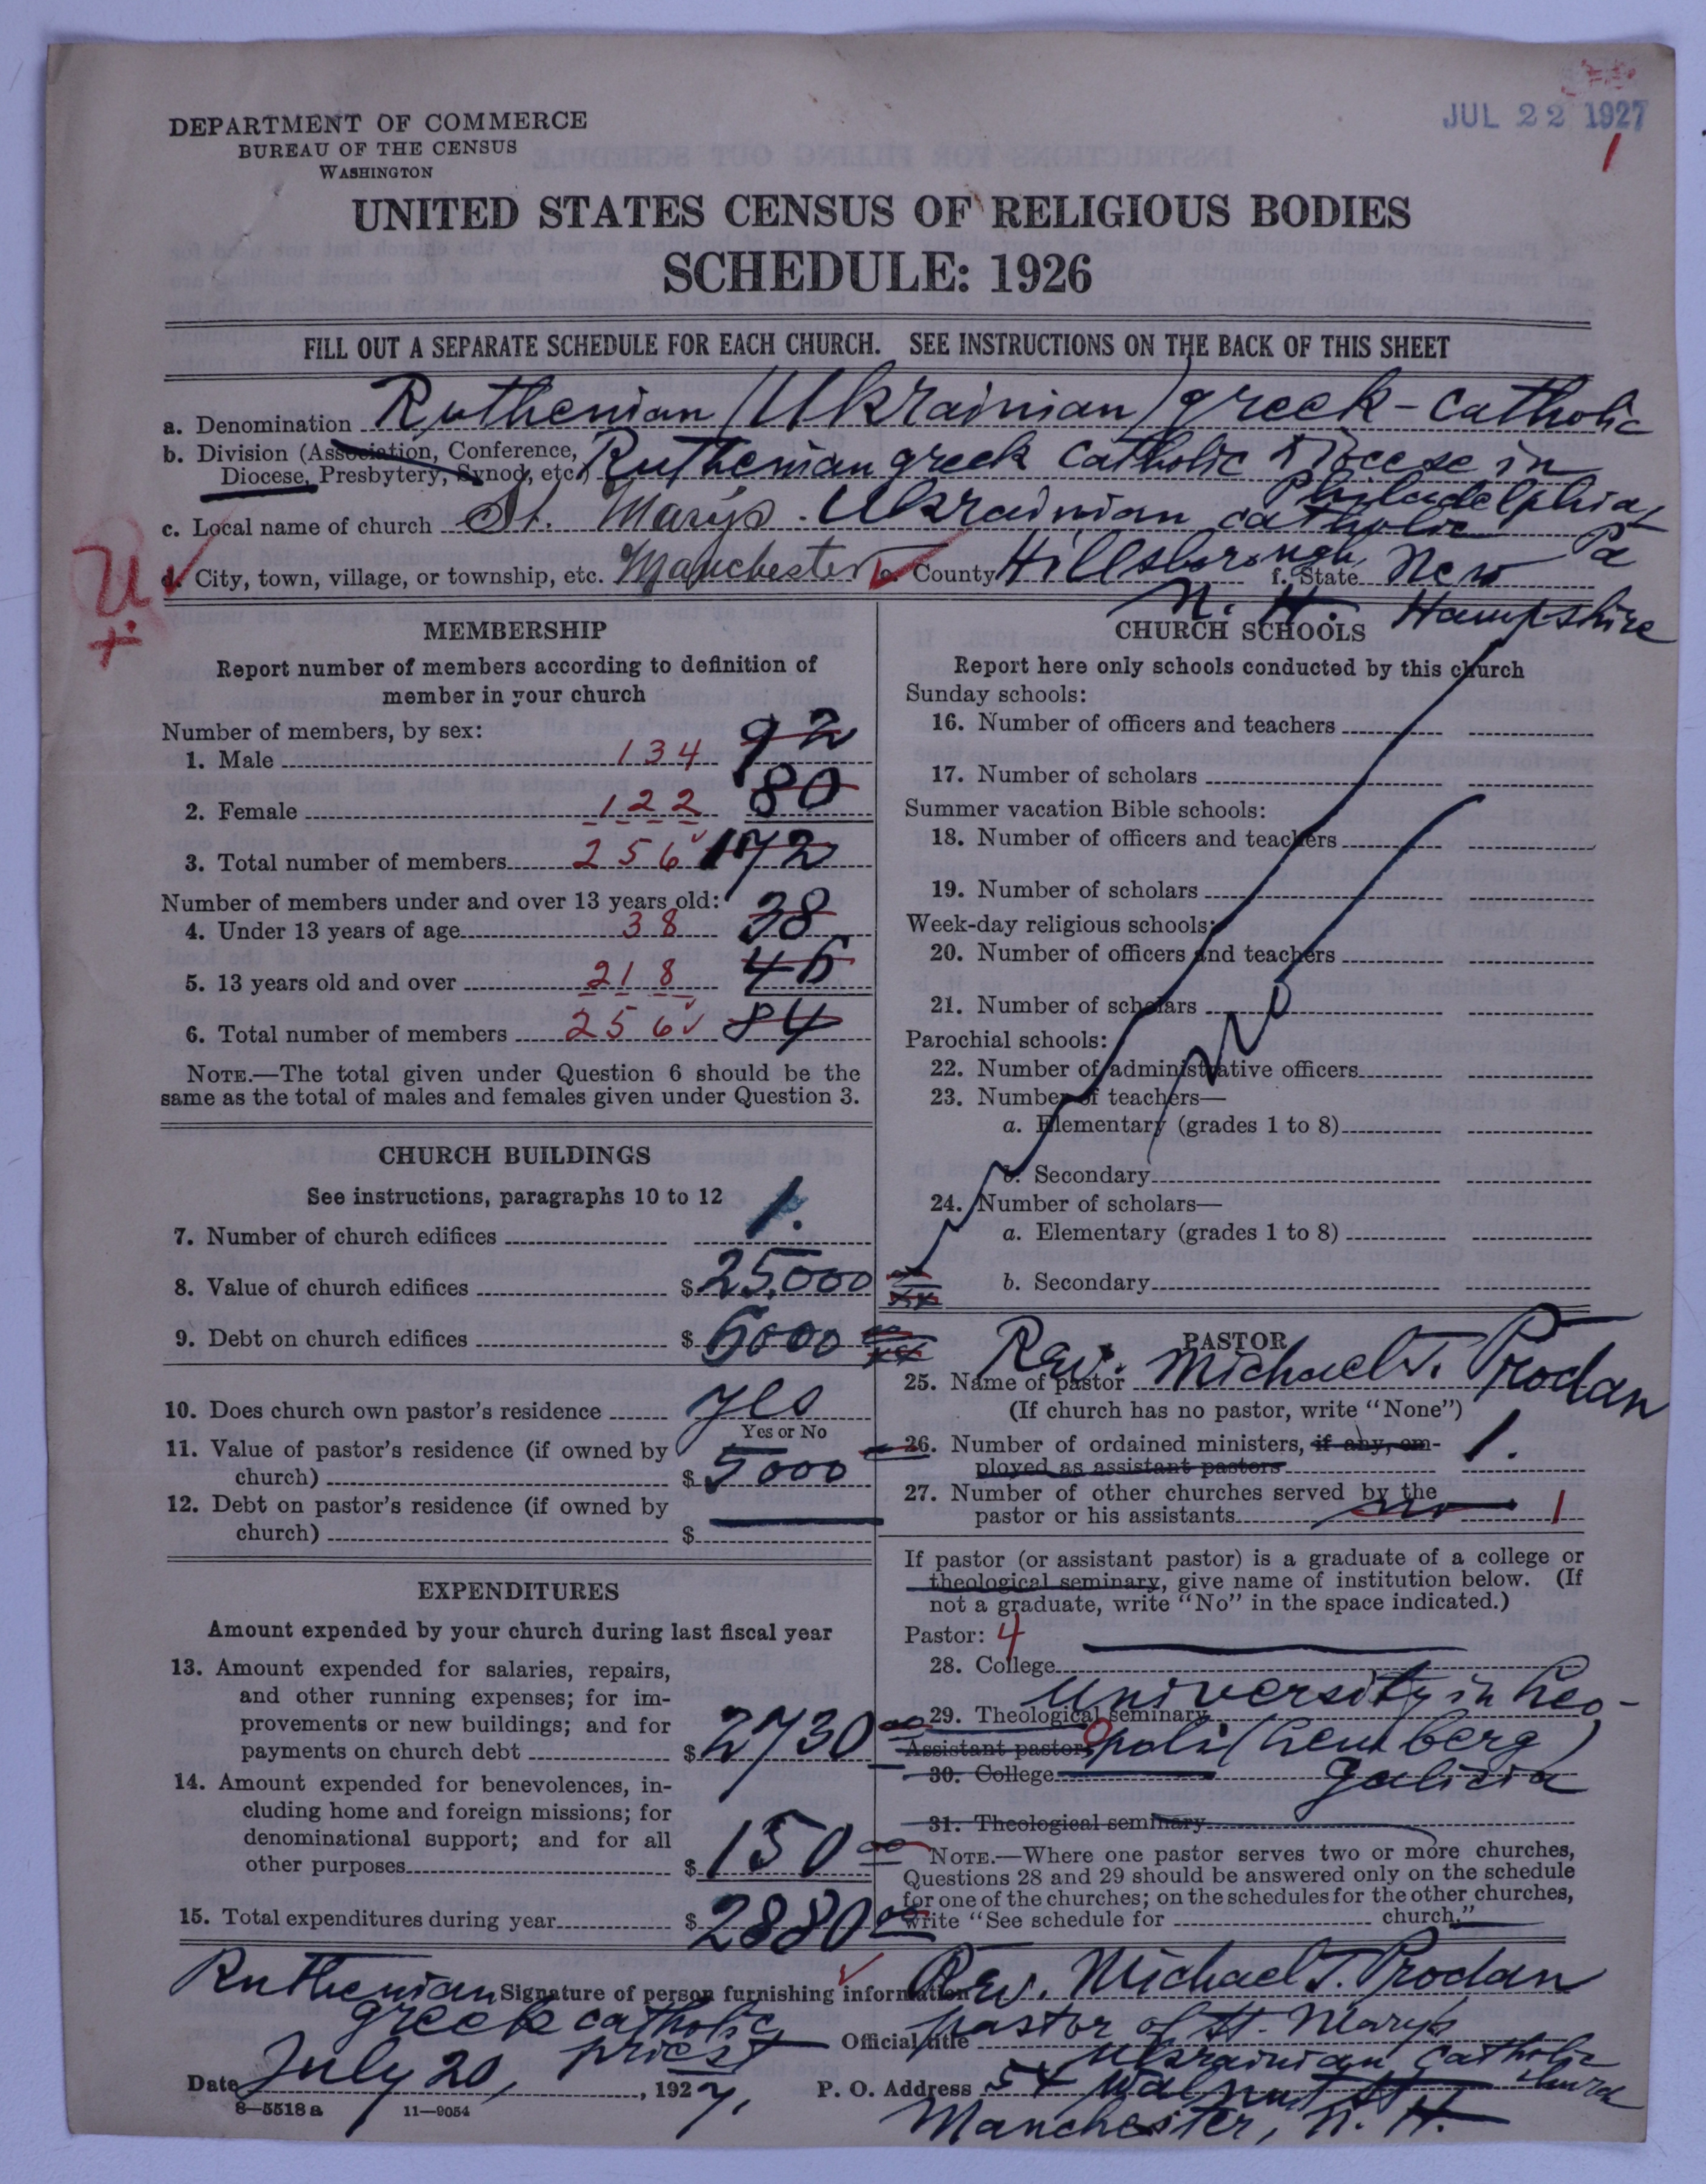 JUL 22 1927
1
DEPARTMENT OF COMMERCE
BUREAU OF THE CENSUS
WASHINGTON
UNITED STATES CENSUS OF RELIGIOUS BODIES
SCHEDULE: 1926
FILL OUT A SEPARATE SCHEDULE FOR EACH CHURCH. SEE INSTRUCTIONS ON THE BACK OF THIS SHEET
a. Denomination Ruthenian (Ukrainian) greek-catholic
b. Division (Association, Conference, Diocese, Presbytery, Synod, etc.) Ruthenian greek catholic Diocese in
Philadelphia, Pa
c. Local name of church St. Mary's Ukrainian catholic
U
+
d. City, town, village, or township, etc. Manchester e. County Hillsborough f. State New
N. H. Hampshire
MEMBERSHIP
Report number of members according to definition of
member in your church
Number of members, by sex:
1. Male 134 92
2. Female 122 80
3. Total number of members 256 172
Number of members under and over 13 years old:
4. Under 13 years of age 38 38
5. 13 years old and over 218 46
6. Total number of members 256 84
NOTE.—The total given under Question 6 should be the
same as the total of males and females given under Question 3.
CHURCH BUILDINGS
See instructions, paragraphs 10 to 12
7. Number of church edifices 1.
8. Value of church edifices $25,000
9. Debt on church edifices $6000
10. Does church own pastor's residence yes
Yes or No
11. Value of pastor's residence (if owned by
church) $5000
12. Debt on pastor's residence (if owned by
church) $
EXPENDITURES
Amount expended by your church during last fiscal year
13. Amount expended for salaries, repairs,
and other running expenses; for im-
provements or new buildings; and for
payments on church debt $2730 00
14. Amount expended for benevolences, in-
cluding home and foreign missions; for
denominational support; and for all
other purposes $150 00
15. Total expenditures during year $2880 00
CHURCH SCHOOLS
Report here only schools conducted by this church
Sunday schools:
16. Number of officers and teachers
17. Number of scholars
Summer vacation Bible schools:
18. Number of officers and teachers
19. Number of scholars
Week-day religious schools:
20. Number of officers and teachers
21. Number of scholars
no
Parochial schools:
22. Number of administrative officers
23. Number of teachers—
a. Elementary (grades 1 to 8)
b. Secondary
24. Number of scholars—
a. Elementary (grades 1 to 8)
b. Secondary
PASTOR
25. Name of pastor Rev. Michael T. Prodan
(If church has no pastor, write "None")
26. Number of ordained ministers, if any, em-
ployed as assistant pastors 1.
27. Number of other churches served by the
pastor or his assistants no 1
If pastor (or assistant pastor) is a graduate of a college or
theological seminary, give name of institution below. (If
not a graduate, write "No" in the space indicated.)
Pastor: 4
28. College
29. Theological seminary University in Leo-
Assistant pastor: poli (Lemberg)
30. College Galicia
31. Theological seminary
NOTE.—Where one pastor serves two or more churches,
Questions 28 and 29 should be answered only on the schedule
for one of the churches; on the schedules for the other churches,
write "See schedule for church."
Signature of person furnishing information Rev. Michael T. Prodan
Ruthenian
greek catholic
priest
Official title pastor of St. Mary's
Ukrainian Catholic
church
Date July 20, 1927.
P. O. Address 54 Walnut St
Manchester, N. H.
8—5518 a 11—9054